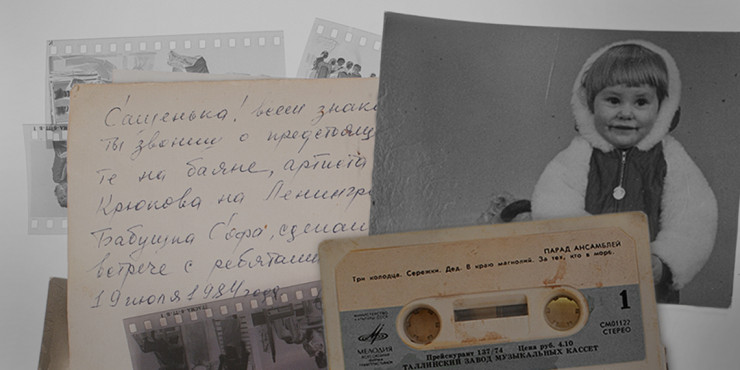 Сашенька! всем знако
ты звонил о предстоящ
те на баяне, артиста
Крюкова на Ленингр
Бабушка Софа, сделай
встрече с ребятами
19 июля 1984 года
ПАРАД АНСАМБЛЕЙ
Три колодца. Сережки. Дед. В краю магнолий. За тех, кто в море.
МИНИСТЕРСТВО
КУЛЬТУРЫ СССР
1
МЕЛОДИЯ
СМ01122
СТЕРЕО
Прейскурант 137/74 Цена руб. 4.10
ТАЛЛИНСКИЙ ЗАВОД МУЗЫКАЛЬНЫХ КАССЕТ